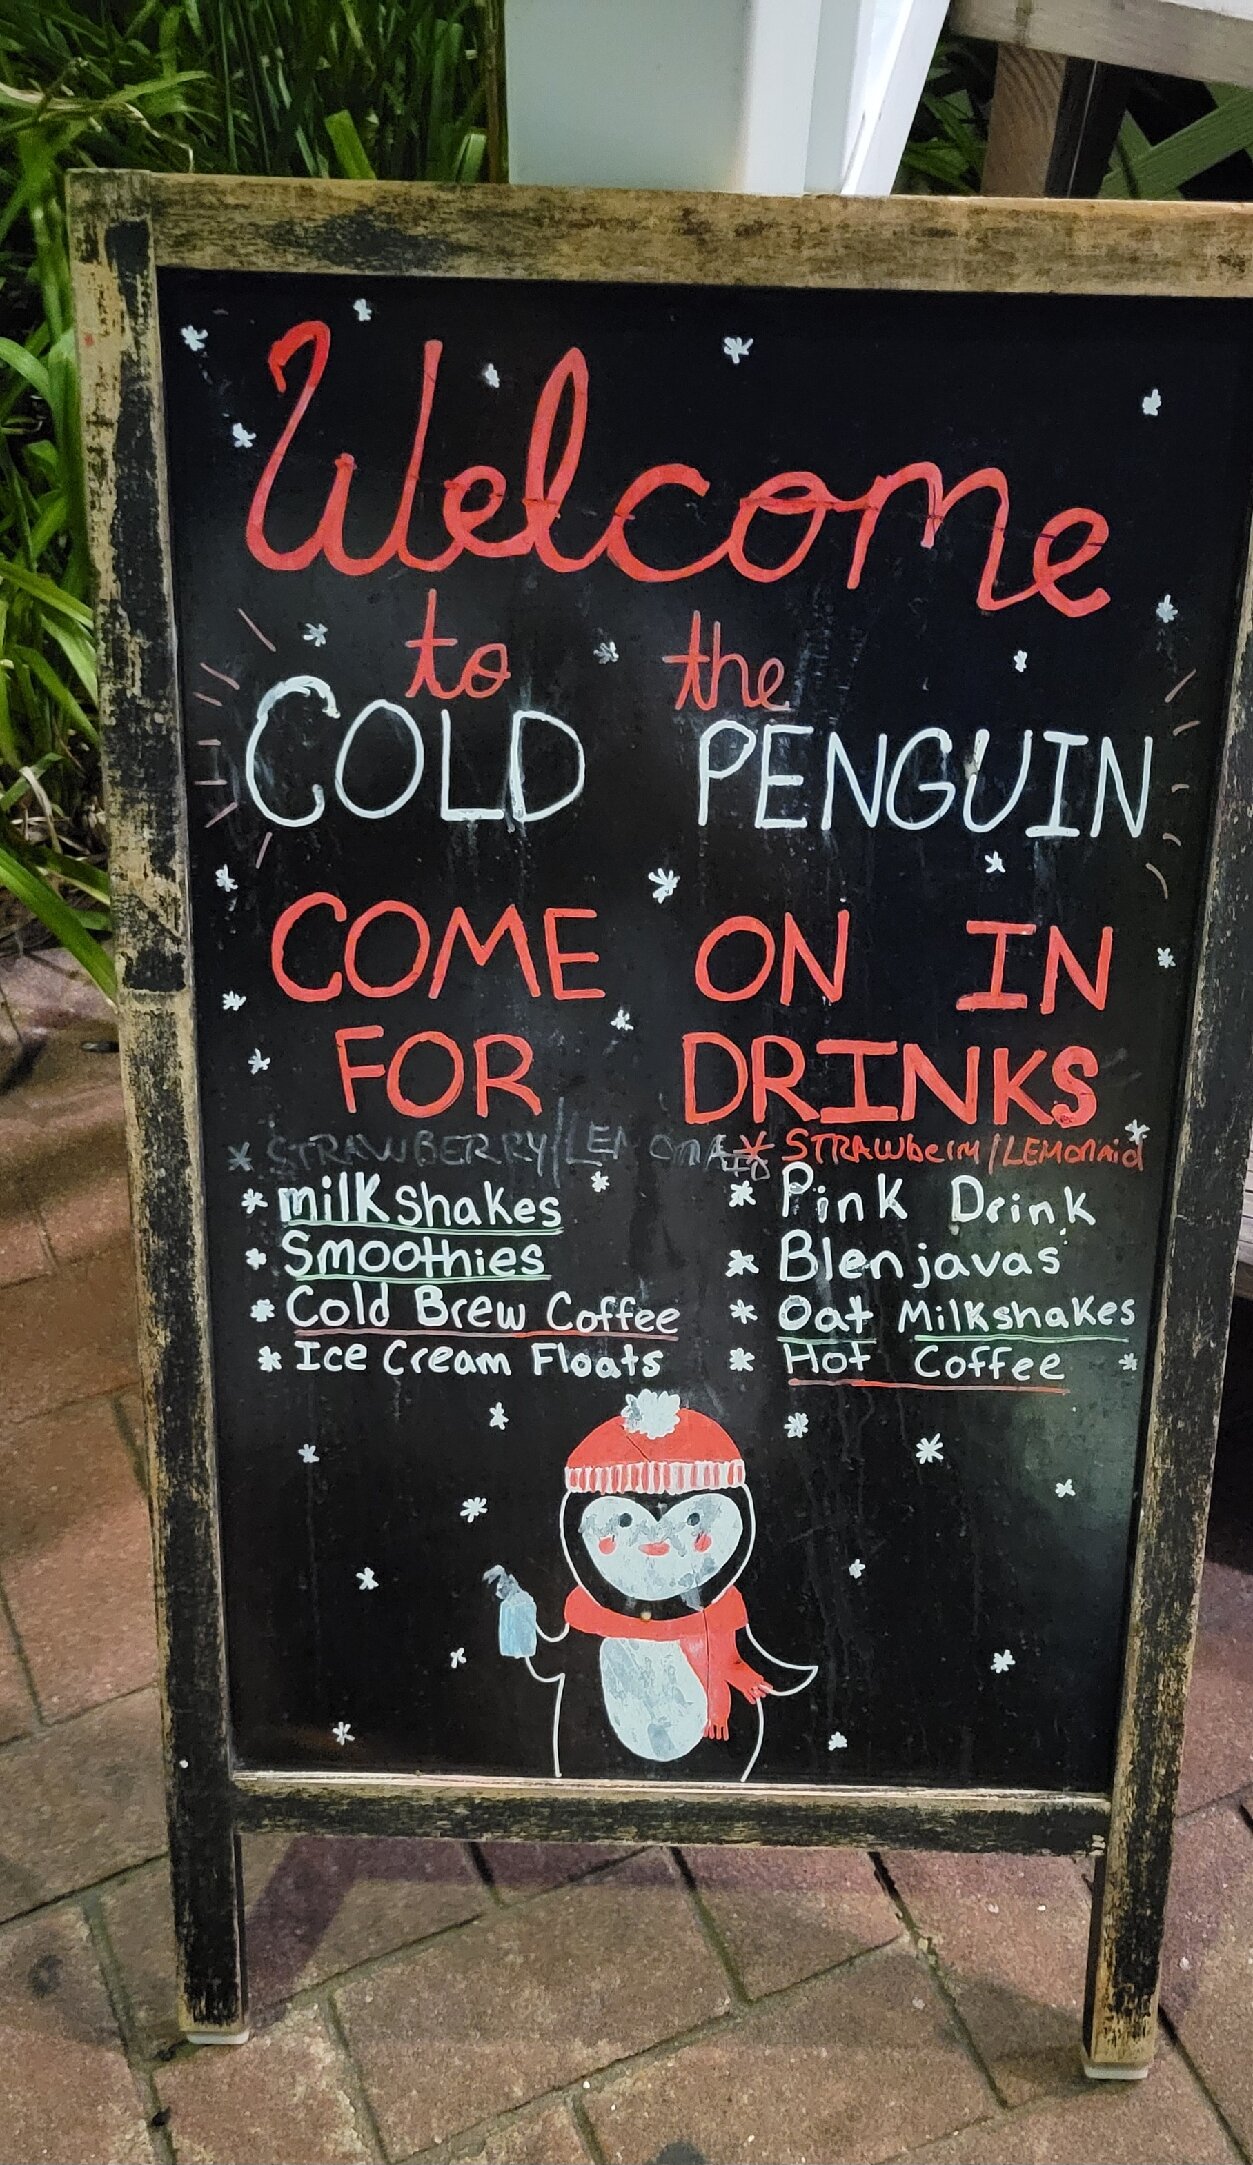 Welcome
to the
COLD PENGUIN
COME ON IN
FOR DRINKS
* STRAWBERRY/LEMONAID
* milkshakes
* Smoothies
* Cold Brew Coffee
* Ice Cream Floats
* STRAWberry/LEMONAid
* Pink Drink
* Blenjavas
* Oat Milkshakes
* Hot Coffee